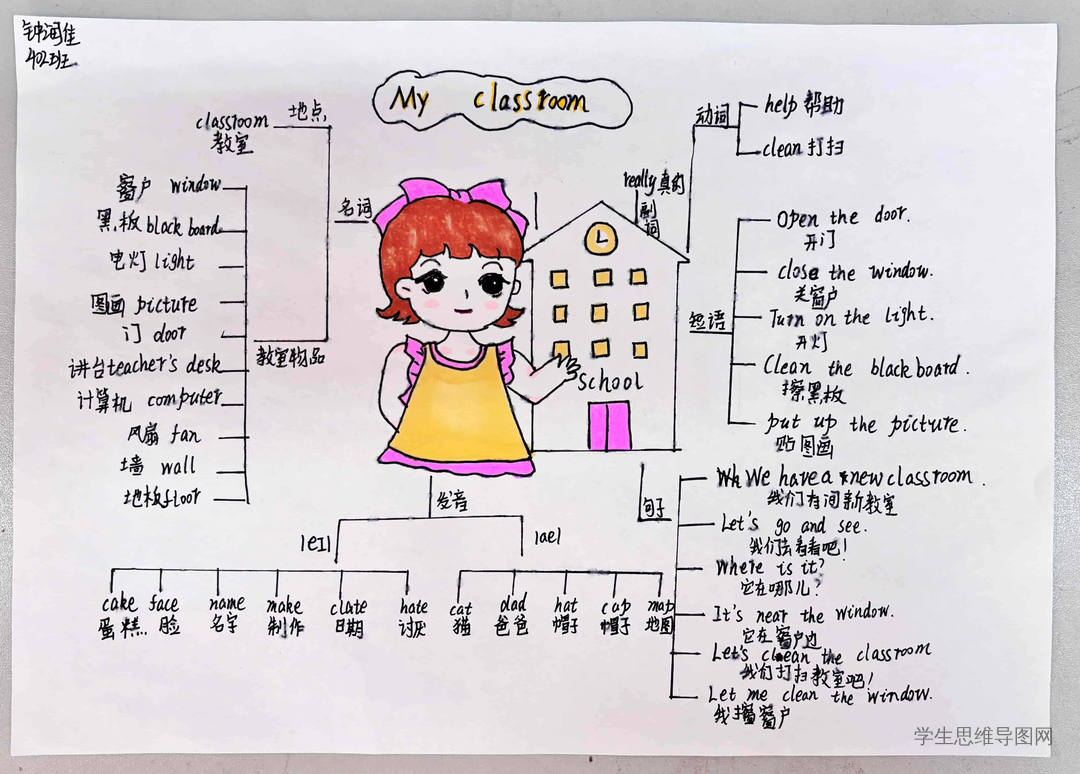 钟润佳
402班
My classroom
名词
地点
classroom
教室
教室物品
窗户 window
黑板 blackboard
电灯 light
图画 picture
门 door
讲台 teacher's desk
计算机 computer
风扇 fan
墙 wall
地板 floor
really 真的
副词
动词
help 帮助
clean 打扫
短语
Open the door.
开门
close the window.
关窗户
Turn on the light.
开灯
Clean the blackboard.
擦黑板
put up the picture.
贴图画
School
句子
We have a new classroom.
我们有间新教室
Let's go and see.
我们去看看吧!
Where is it?
它在哪儿?
It's near the window.
它在窗户边
Let's clean the classroom
我们打扫教室吧!
Let me clean the window.
我擦窗户
发音
|eI|
cake face name make date hate
蛋糕.. 脸 名字 制作 日期 讨厌
|ae|
cat dad hat cap map
猫 爸爸 帽子 帽子 地图
学生思维导图网